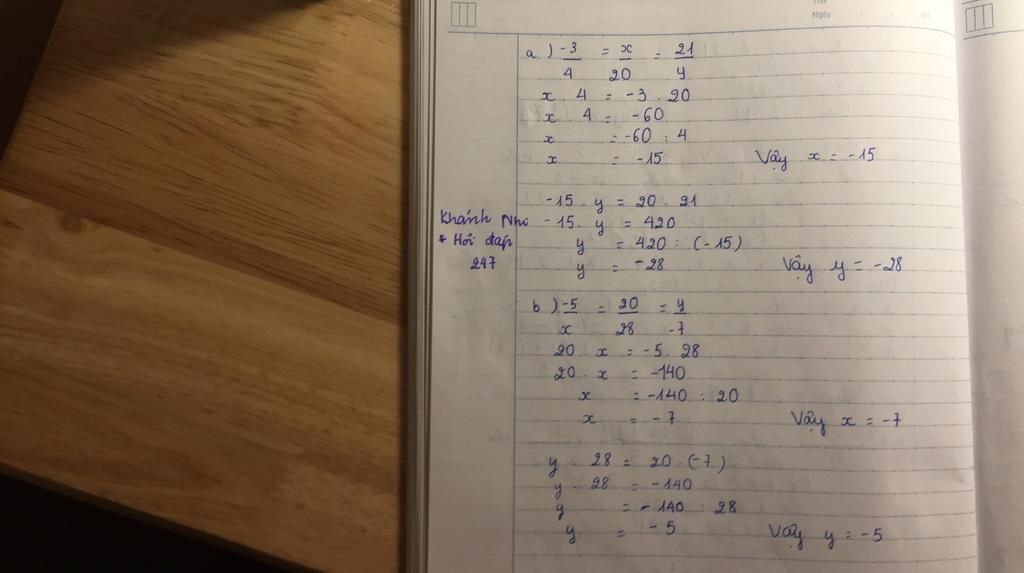 Thứ
Ngày
a ) -3/4 = x/20 = 21/y
x . 4 = -3 . 20
x . 4 = -60
x = -60 : 4
x = -15 Vậy x = -15
-15 . y = 20 . 21
-15 . y = 420
y = 420 : (-15)
y = -28 Vậy y = -28
Khánh Nhi
* Hỏi đáp
247
b ) -5/x = 20/28 = y/-7
20 . x = -5 . 28
20 . x = -140
x = -140 : 20
x = -7 Vậy x = -7
y . 28 = 20 . (-7)
y . 28 = -140
y = -140 : 28
y = -5 Vậy y = -5